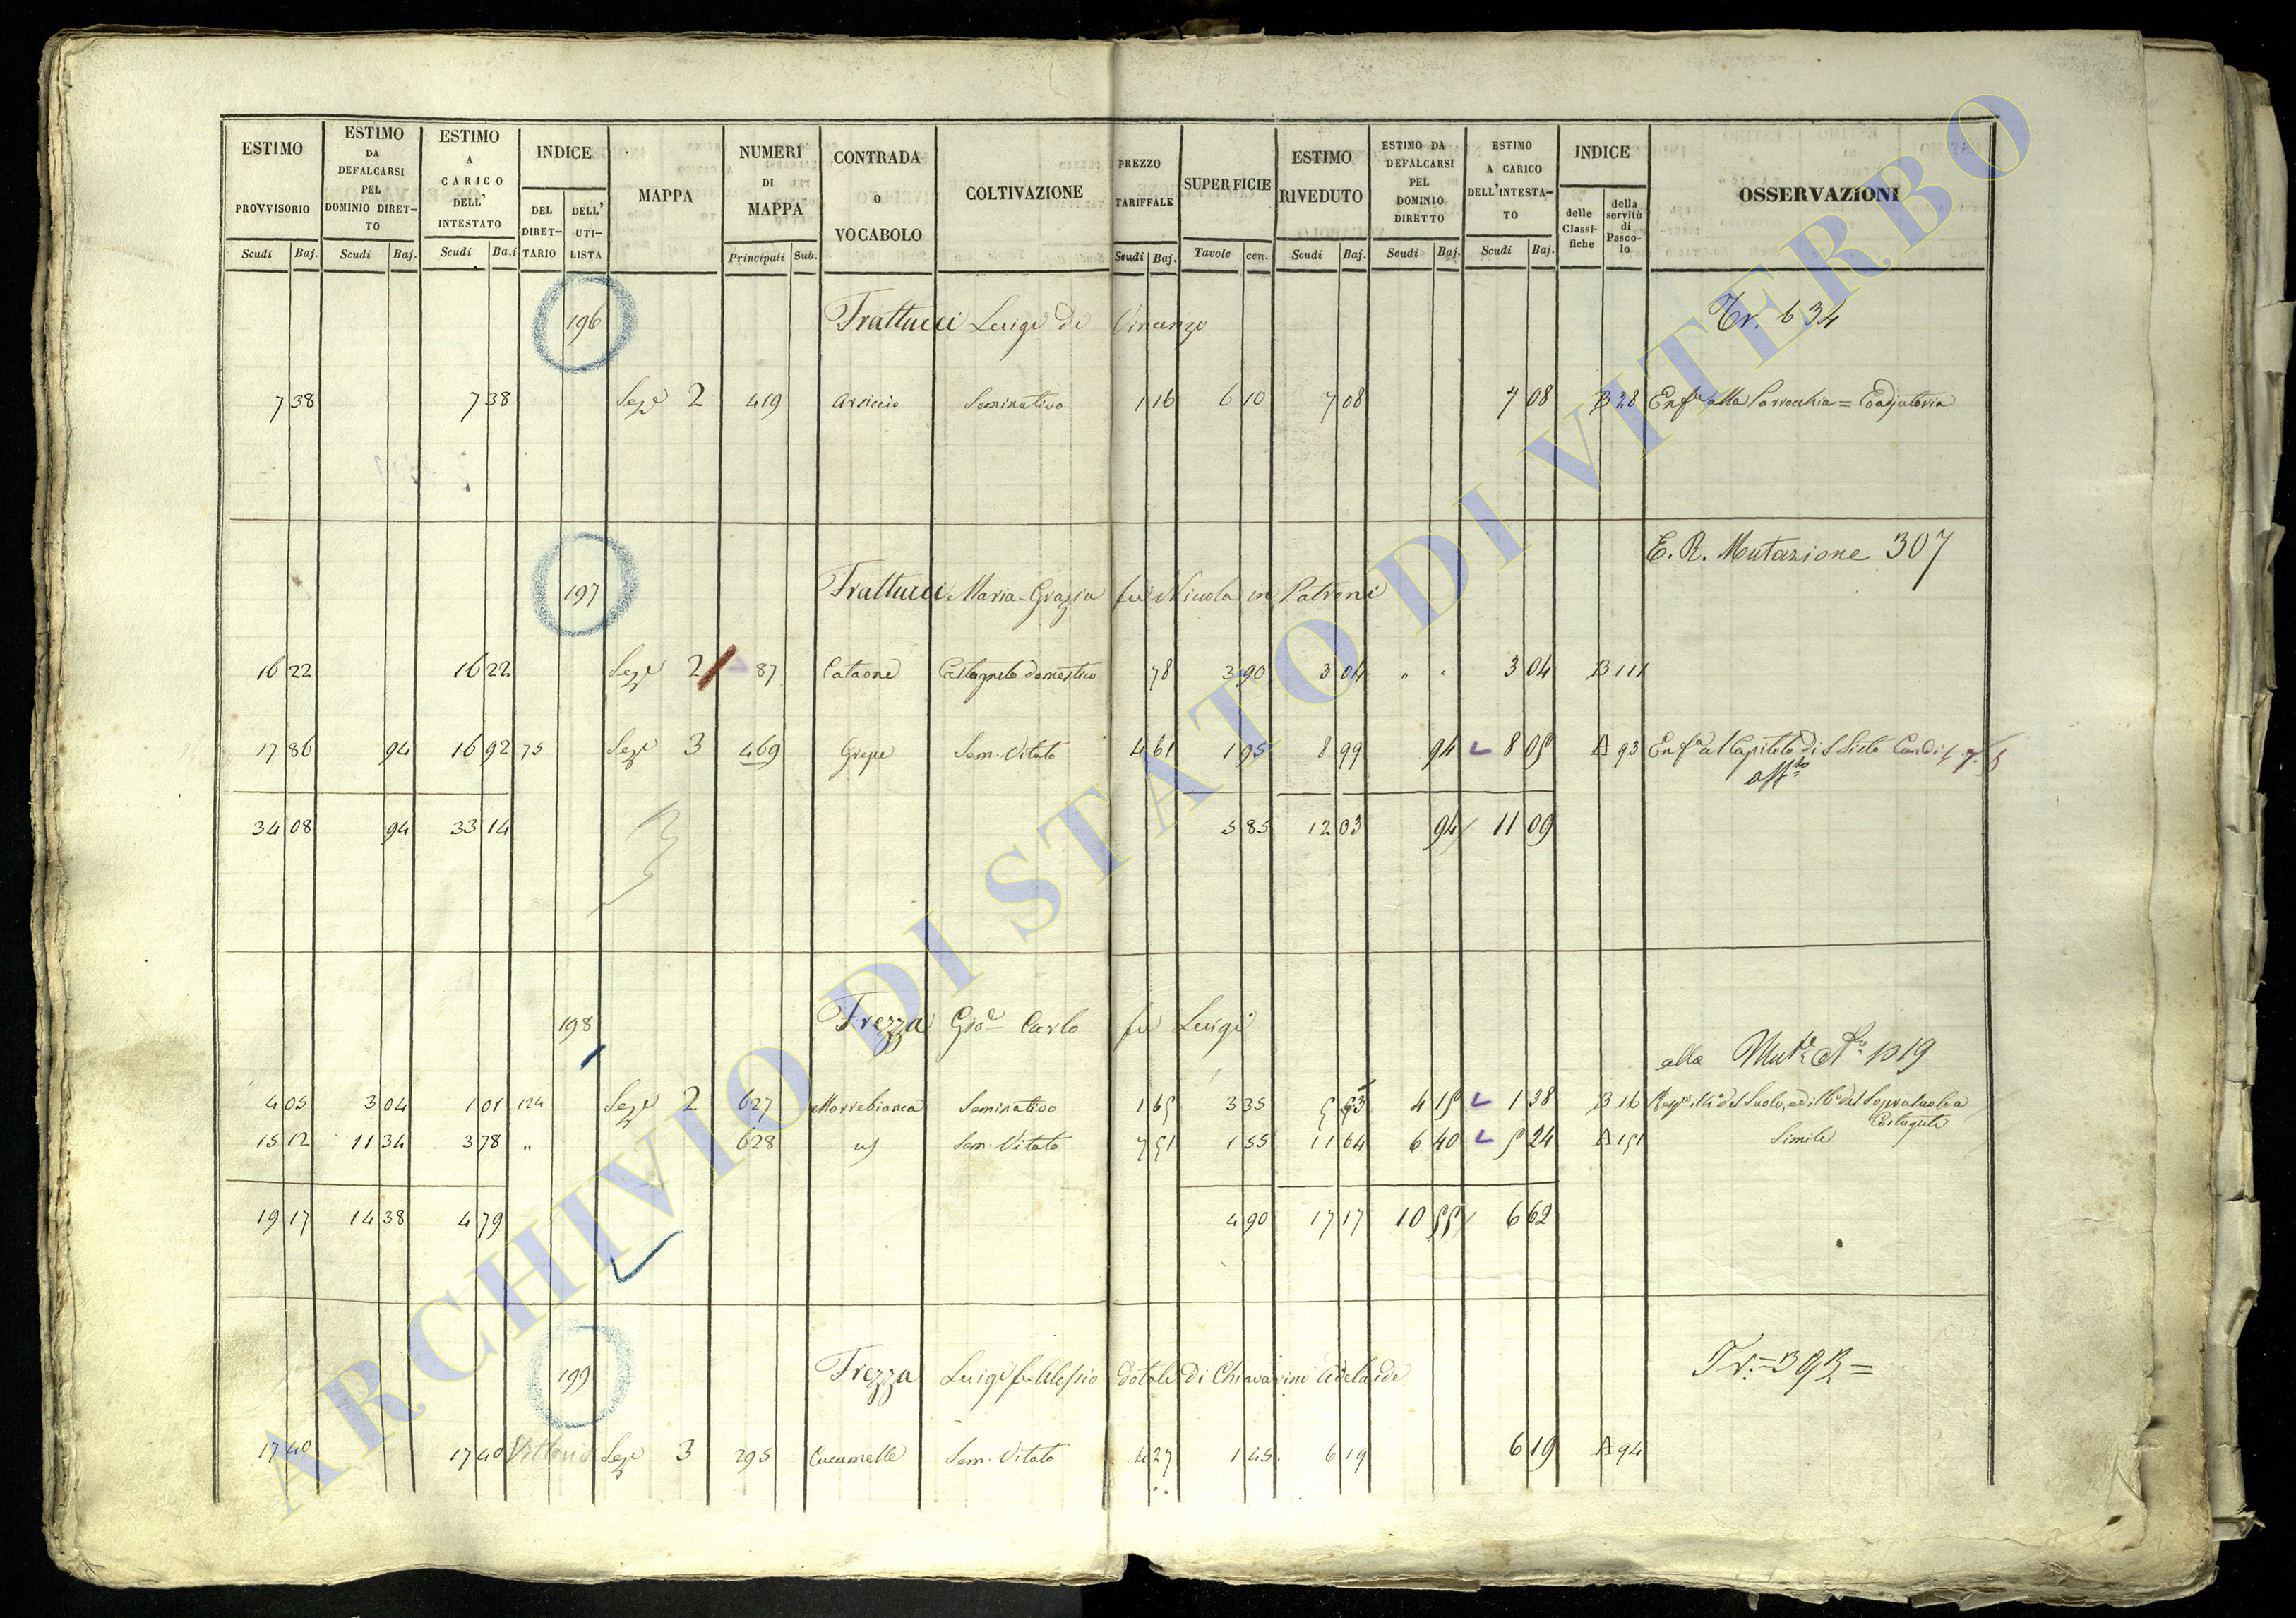 ESTIMO PROVVISORIO Scudi Baj. ESTIMO DA DEFALCARSI PEL DOMINIO DIRETTO Scudi Baj. ESTIMO A CARICO DELL' INTESTATO Scudi Ba.i INDICE DEL DIRETTARIO DELL' UTILISTA MAPPA NUMERI DI MAPPA Principali Sub. CONTRADA O VOCABOLO COLTIVAZIONE PREZZO TARIFFALE Scudi Baj. SUPERFICIE Tavole cen. ESTIMO RIVEDUTO Scudi Baj. ESTIMO DA DEFALCARSI PEL DOMINIO DIRETTO Scudi Baj. ESTIMO A CARICO DELL'INTESTATO Scudi Baj. INDICE delle Classifiche della servitù di Pascolo OSSERVAZIONI
196 Frattucci Luigi di Vincenzo Tr. 634
7 38 7 38 Sez.e 2 419 Arsiccio Seminativo 1 16 6 10 7 08 7 08 B 28 Enf.a alla Parrocchia = Coadjutoria
E. R. Mutazione 307
197 Frattucci Maria-Grazia fu Nicola in Patroni
16 22 16 22 Sez.e 2 87 Cataone Castagneto domestico 78 3 90 3 04 " " 3 04 B 111
17 86 94 16 92 75 Sez.e 3 469 Grepe Sem. Vitato 4 61 1 95 8 99 94 8 05 A 93 Enf.a al Capitolo di S Sisto
34 08 94 33 14 5 85 12 03 94 11 09
198 Frezza Gio. Carlo fu Luigi
alla Mut.e N.o 1219
4 05 3 04 1 01 124 Sez.e 2 627 Morrebianca Seminativo 1 65 3 35 5 53 4 15 1 38 B 16
15 12 11 34 3 78 " 628 Sem. Vitato 7 51 1 55 11 64 6 40 5 24 A 151 Simile
19 17 14 38 4 79 4 90 17 17 10 55 6 62
199 Frezza Luigi fu Alessio dotale di Chiavarini Adelaide Tr. = 392 =
17 40 17 40 Vittorio Sez.e 3 295 Cucumelle Sem. Vitato 4 27 1 45 6 19 6 19 A 94
ARCHIVIO DI STATO DI VITERBO